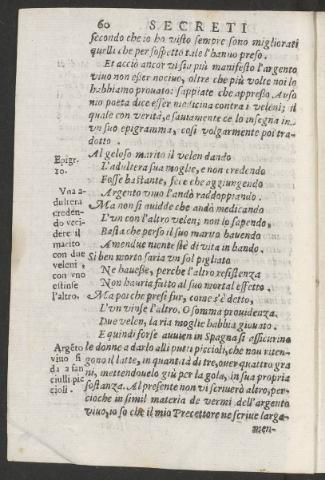 60 SECRETI
secondo che io ho visto sempre sono migliorati
quelli che per sospetto tale l'hanno preso.
Et acciò ancor vi sia più manifesto l'argento
viuo non esser nociuo, oltre che più volte noi lo
habbiamo prouato: sappiate che appresso Auso
nio poeta dice esser medicina contra i veleni; il
quale con verità, e sauiamente ce lo insegna in
vn suo epigramma, così volgarmente poi tra-
dotto.
Epigr.
Al geloso marito il velen dando
L'adultera sua moglie, e non credendo
Fosse bastante, sei e che aggiungendo
Argento viuo l'andò raddoppiando.
Vna a-
dultera
creden-
do veci-
dere il
marito
con due
veleni,
con vno
estinse
l'altro.
Ma non si auidde che andò medicando
L'vn con l'altro velen; non lo sapendo,
Basta che perso il suo marito hauendo
Amendue niente stè di vita in bando.
Si ben morto saria vn sol pigliato
Ne hauesse, perche l'altro resistenza
Non hauria fatto al suo mortal effetto.
Ma poi che presi fur, come s'è detto,
L'vn vinse l'altro. O somma prouidenza.
Due velen, la ria moglie habbia giouato.
E quindi forse auuien in Spagna si assicurino
Argēto
viuo si
da a fan
ciulli pic
cioli.
le donne a darlo alli putti piccioli, che non riten-
gono il latte, in quantità di tre, ouer quattro gra
ni, mettendouelo giù per la gola, in sua propria
sostanza. Al presente non vi scriuerò altro, per-
cioche in simil materia de vermi dell'argento
viuo, io so che il mio Precettore ne scriue larga-
men-